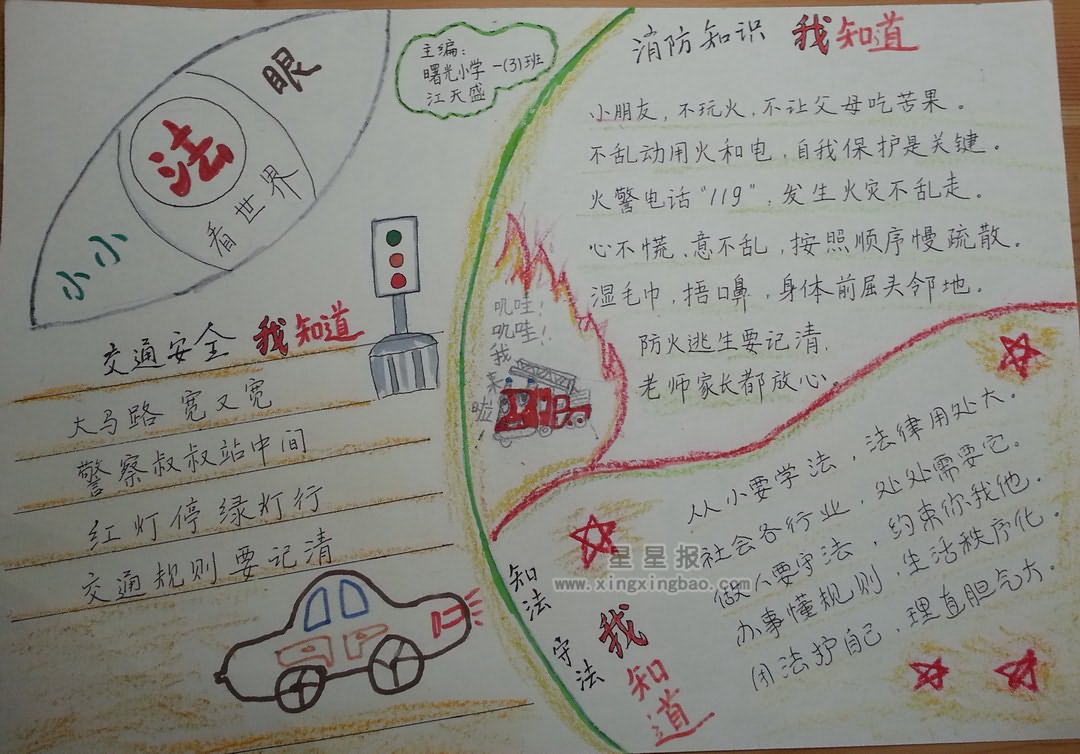 小小
法
眼
看世界
主编:
曙光小学一(3)班
江天盛
交通安全 我知道
大马路 宽又宽
警察叔叔站中间
红灯停 绿灯行
交通规则要记清
消防知识 我知道
小朋友,不玩火,不让父母吃苦果。
不乱动用火和电,自我保护是关键。
火警电话“119”,发生火灾不乱走。
心不慌、意不乱,按照顺序慢疏散。
湿毛巾,捂口鼻,身体前屈头邻地。
防火逃生要记清,
老师家长都放心。
叽哇!
叽哇!!
我
来
啦
知法
守法
我知道
从小要学法,法律用处大。
社会各行业,处处需要它。
做人要守法,约束你我他。
办事懂规则,生活秩序化。
用法护自己,理直胆气大。
星星报
www.xingxingbao.com